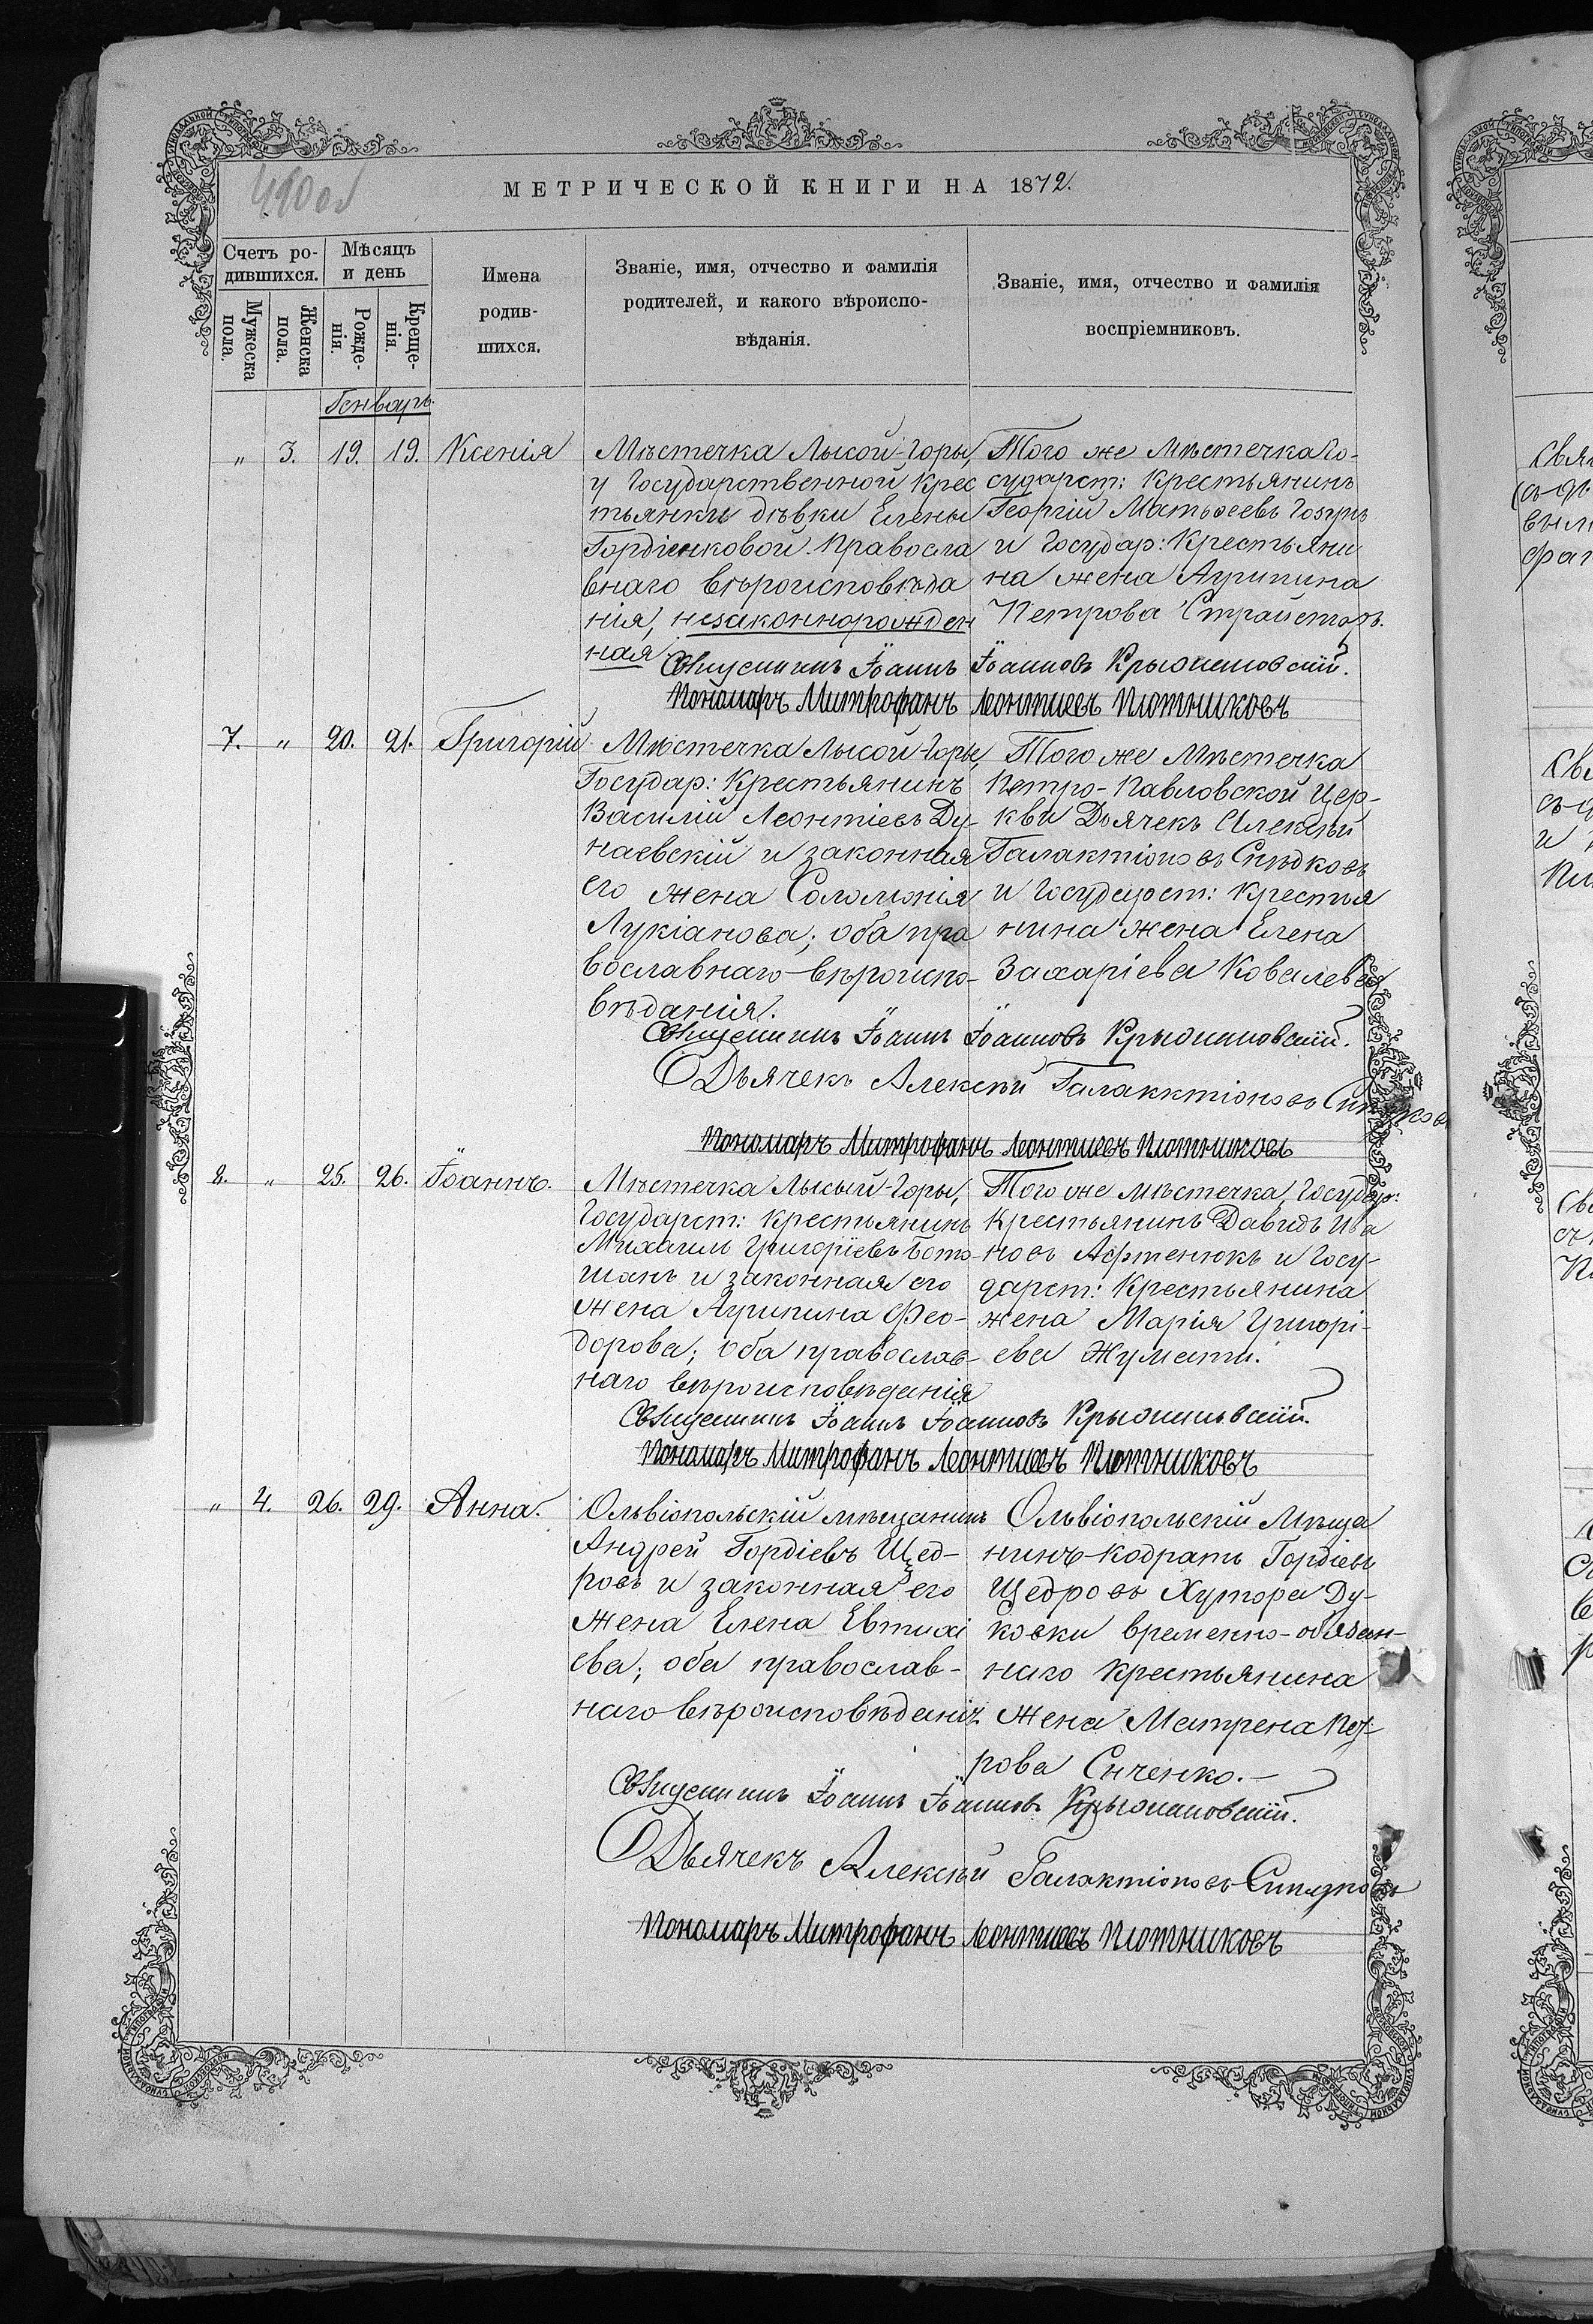 410 об
МЕТРИЧЕСКОЙ КНИГИ НА 1872.
Счетъ ро-
дившихся.
Мѣсяцъ
и день
Имена
родив-
шихся.
Званіе, имя, отчество и фамилія
родителей, и какого вѣроиспо-
вѣданія.
Званіе, имя, отчество и фамилія
воспріемниковъ.
Мужеска
пола.
Женска
пола.
Рожде-
нія.
Креще-
нія.
Генварь.
" 3. 19. 19. Ксенія
Мѣстечка Лысой-Горы,
у Государственной Крес
тьянки дѣвки Елены
Гордіенковой. Правосла
внаго вѣроисповѣда
нія, незаконнорожден
ная
Того же Мѣстечка Го-
сударст: Крестьянинъ
Георгій Матѳеевъ
и Государ: Крестьяни
на жена Агрипина
Петрова
Священникъ Іоаннъ Іоанновъ Крыжановскій.
Пономарь Митрофанъ Леонтиевъ Плотниковъ
7. " 20. 21. Григорій
Мѣстечка Лысой-Горы,
Государ: Крестьянинъ
Василій Леонтіевъ Ду-
наевскій и законная
его жена Соломонія
Лукіанова; оба пра
вославнаго вѣроиспо-
вѣданія.
Того же Мѣстечка
Петро-Павловской Цер-
кви Дьячекъ Алексѣй
Галактіоновъ
и Государст: Крестья
нина жена Елена
Захаріева Ковалева
Священникъ Іоаннъ Іоанновъ Крыжановскій.
Дьячекъ Алексѣй Галакктіоновъ
Пономарь Митрофанъ Леонтиевъ Плотниковъ
8. " 25. 26. Іоаннъ.
Мѣстечка Лысый-Горы,
Государст: крестьянинъ
Михаилъ Григоріевъ Бото-
шанъ и законная его
жена Агрипина Фео-
дорова; оба православ-
наго вѣроисповѣданія
Того же мѣстечка, Государ:
Крестьянинъ Давидъ Ива
новъ Афтенюкъ и Госу-
дарст: Крестьянина
жена Марія Григорі-
ева
Священникъ Іоаннъ Іоанновъ Крыжановскій.
Пономарь Митрофанъ Леонтиевъ Плотниковъ
" 4. 26. 29. Анна.
Ольвіопольскій мѣщанинъ
Андрей Гордіевъ Щед-
ровъ и законная его
жена Елена Евтихі
ева; оба православ-
наго вѣроисповѣданія
Ольвіопольскій Мѣща
нинъ Кодратъ Гордіевъ
Щедровъ Хутора Ду-
ковки временно-обязан-
наго крестьянина
жена Матрена Пет-
рова
Священникъ Іоаннъ Іоанновъ Крыжановскій.
Дьячекъ Алексѣй Галактіоновъ
Пономарь Митрофанъ Леонтиевъ Плотниковъ